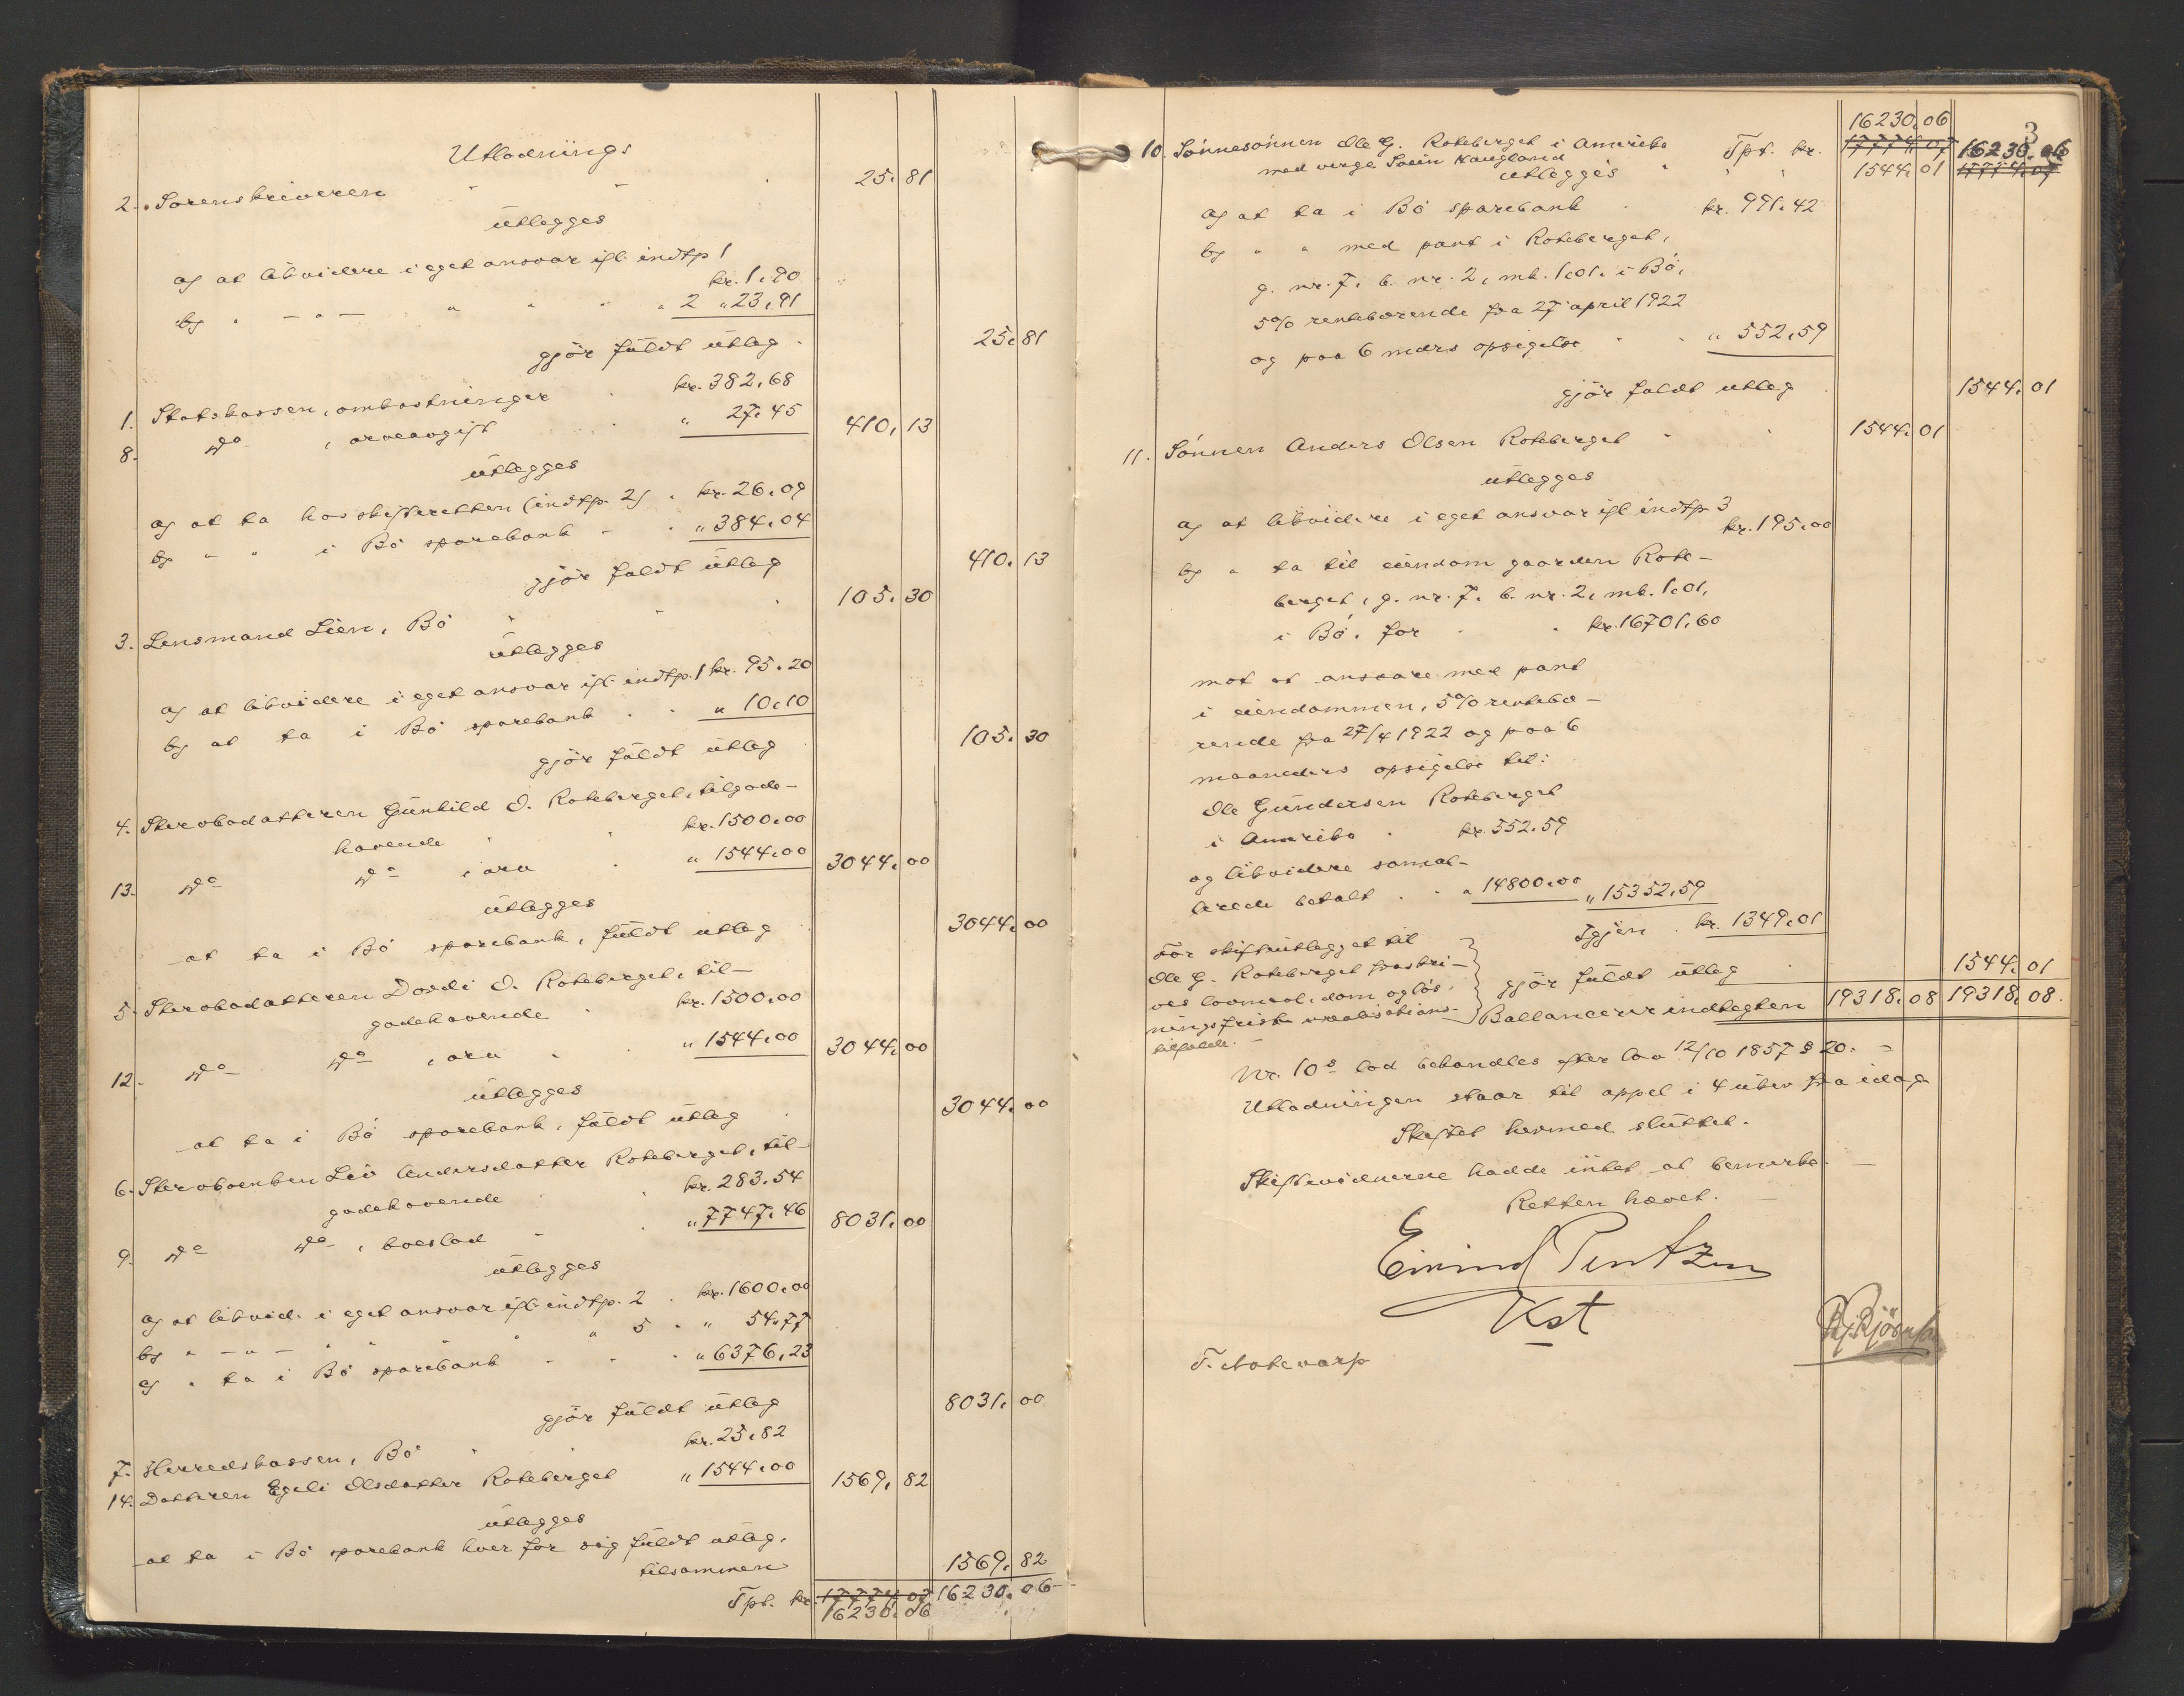 Utlodnings
2. Sorenskriveren " " . 25. 81
utlegges
a) at likvidere i eget ansvar ifl. indtp 1
kr. 1,90
b) " — " — " " " " 2 " 23,91
gjör fuldt utleg . 25. 81
1. Statskassen, omkostninger . kr. 382,68
8. do , arveavgift . " 27,45 410, 13
utlegges
a) at ta hos skifteretten (indtp. 2) . kr. 26,09
b) " " i Bö sparebank - . " 384,04
gjör fuldt utleg 410. 13
3. Lensmand Lien, Bö " " . 105. 30
utlegges
a) at likvidere i eget ansvar ifl. indtp. 1 kr. 95,20
b) at ta i Bö sparebank . . " 10,10
gjör fuldt utleg 105. 30
4. Stervbodatteren Gunhild O. Roteberget, tilgode-
havende " " kr. 1500,00
13. do do i arv . " 1544,00 3044. 00
utlegges
at ta i Bö sparebank, fuldt utleg 3044. 00
5. Stervbodatteren Dordi O. Roteberget, til-
godehavende . kr. 1500,00
12. do do , arv . . " 1544,00 3044. 00
utlegges
at ta i Bö sparebank, fuldt utleg . 3044. 00
6. Stervboenken Liv Andersdatter Roteberget, til-
godehavende . . kr. 283,54
9. do do , boeslod - . " 7747,46 8031. 00
utlegges
a) at likvid. i eget ansvar ifl. indtp. 2 . kr. 1600,00
b) " — " — " " " " " 5 . " 54,77
c) " ta i Bö sparebank - . . " 6376,23
gjör fuldt utleg 8031. 00
7. Herredskassen, Bö " . kr. 25,82
14. Datteren Egeli Olsdatter Roteberget " 1544,00 1569. 82
utlegges
at ta i Bö sparebank hver for sig fuldt utleg,
tilsammen 1569. 82
Tpt. kr. 17774. 07 16230. 06
16230. 06
3
16230. 06
10. Sönnesönnen Ole G. Roteberget i Amerika Tpt. kr. 17774. 07 16230. 06
med verge Svein Haugland " " " 1544. 01 17774. 07
utlegges
a) at ta i Bö sparebank . kr. 991,42
b) " " med pant i Roteberget,
g. nr. 7, b. nr. 2, mk. 1,01, i Bö,
5% rentebærende fra 27 april 1922
og paa 6 mdrs opsigelse . . " 552,59
gjör fuldt utleg . 1544. 01
11. Sönnen Anders Olsen Roteberget - . 1544. 01
utlegges
a) at likvidere i eget ansvar ifl. indtp 3
kr. 195,00
b) " ta til eiendom gaarden Rote-
berget, g. nr. 7, b. nr. 2, mk. 1,01,
i Bö, for . . kr. 16701,60
mot at ansvare med pant
i eiendommen, 5% rentebæ-
rende fra 27/4 1922 og paa 6
maaneders opsigelse til:
Ole Gundersen Roteberget
i Amerika . kr. 552,59
og likvidere som al-
lerede betalt . . " 14800,00 " 15352,59
Igjen . kr. 1349,01
For skifteutlegget til
Ole G. Roteberget fraskri-
ves lovmaal, dom og lös-
ningsfrist i realisations-
tilfælde. —
gjör fuldt utleg . 1544. 01
Ballancerer indtegten 19318. 08 19318. 08.
Nr. 10s lod behandles efter lov 12/10 1857 § 20. —
Utlodningen staar til appel i 4 uker fra idag
Skiftet hermed sluttet.
Skiftevidnerne hadde intet at bemerke. —
Retten hævet. —
Eivind Pentzen
Kst
T. Notevarp